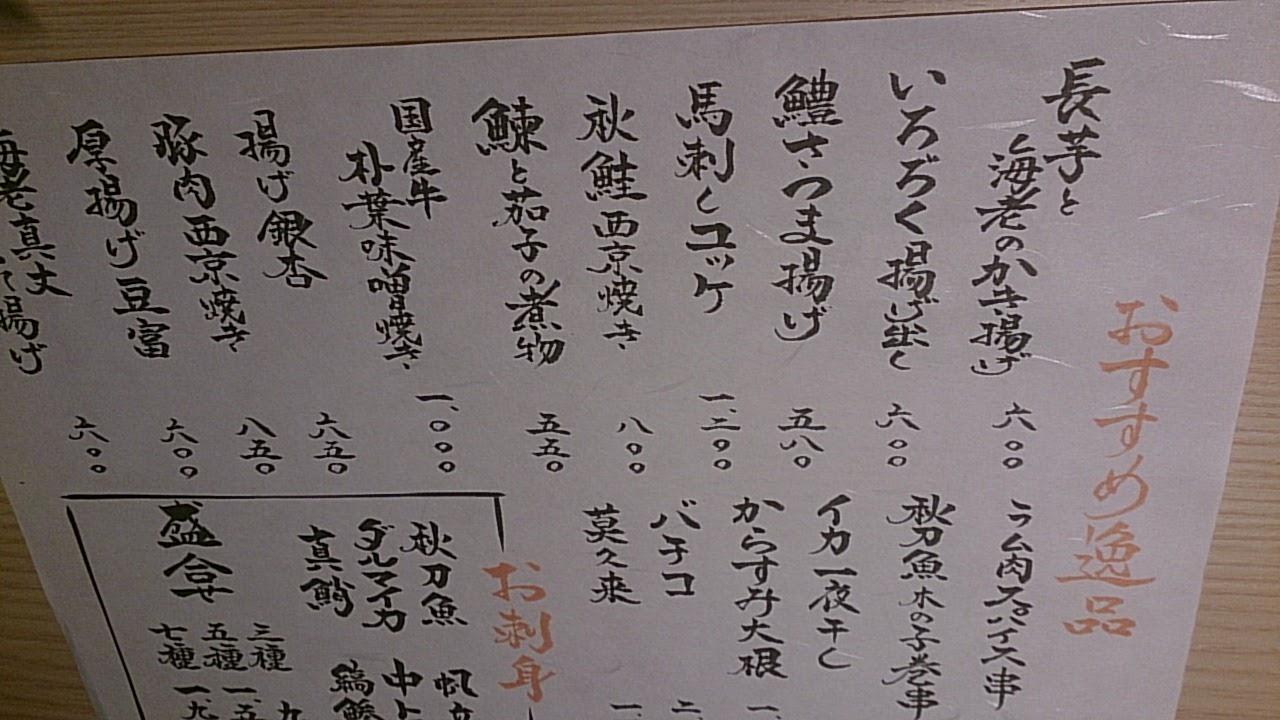 おすすめ逸品
長芋と
海老のかき揚げ 六〇〇
いろどく揚げ出し 六〇〇
鱧さつま揚げ 五八〇
馬刺しユッケ 一、二〇〇
秋鮭西京焼き 八〇〇
鰊と茄子の煮物 五五〇
国産牛
朴葉味噌焼き 一、〇〇〇
揚げ銀杏 六五〇
豚肉西京焼き 八五〇
厚揚げ豆富 六〇〇
海老真丈
揚げ 六〇〇
ラム肉スパイス串
秋刀魚木の子巻串
イカ一夜干し
からすみ大根
バチコ
莫久来
お刺身
秋刀魚
ダルマイカ
真鯛
帆立
中ト
縞鯵
盛合せ
三種
五種
七種